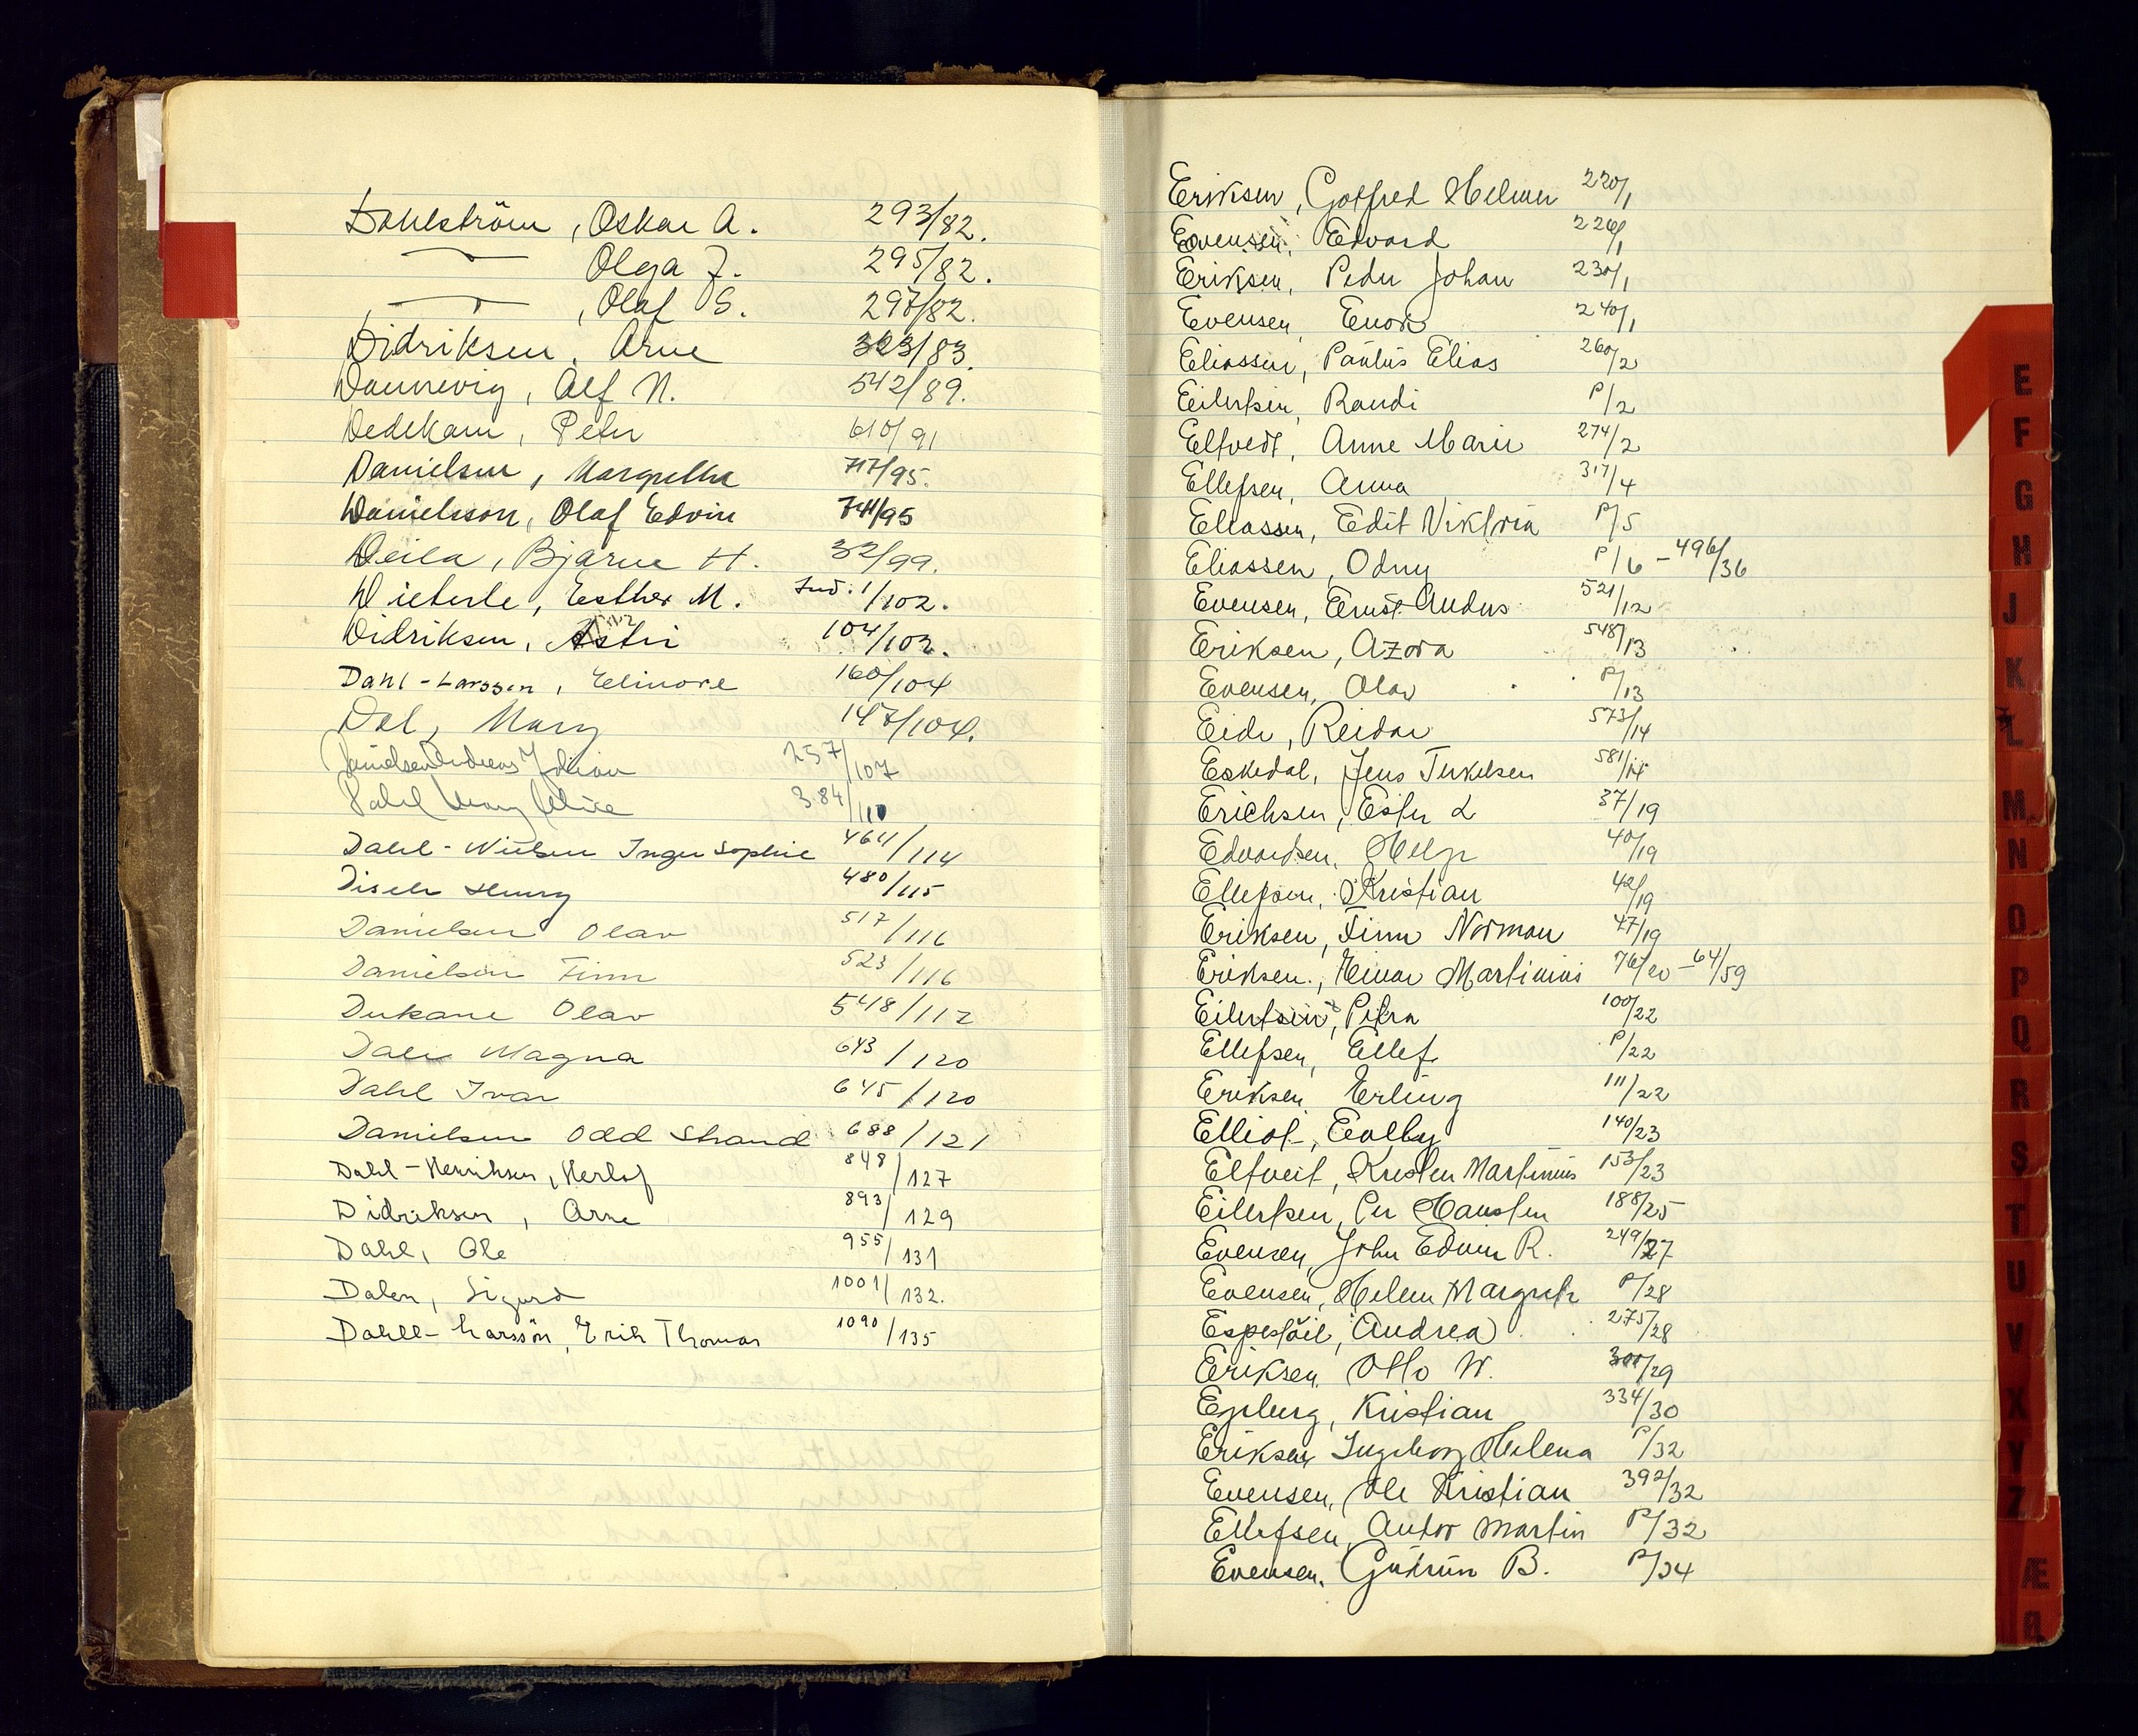 Dahlström, Oskar A. 293/82.
— " — Olga J. 295/82.
— " — , Olaf S. 297/82.
Didriksen, Arne 323/83.
Dannevig, Alf N. 542/89.
Dedekam, Peter 610/91
Danielsen, Margrethe 717/95.
Danielsson, Olaf Edvin 741/95
Deila, Bjarne H. 32/99.
Dieterle, Esther M. Ind. 1/102.
Didriksen, Astri 104/102.
Dahl-Larssen, Elinore 160/104
Dal, Mary 147/104.
Danielsen Andreas Johan 257/107
Dahl Mary Alice 384/110
Dahl-Nielsen Inger Sophie 464/114
Disch Henry 480/115
Danielsen Olav 517/116
Danielsen Finn 523/116
Dukane Olav 548/117
Dale Magna 643/120
Dahl Ivar 645/120
Danielsen Odd Strand 688/121
Dahl-Henriksen, Herlof 848/127
Didriksen, Arne 893/129
Dahl, Ole 955/131
Dalen, Sigurd 1001/132.
Dahll-Larssön, Erik Thomas 1090/135
Eriksen, Gotfred Helmer 220/1
Evensen, Edvard 226/1
Eriksen, Peder Johan 230/1
Evensen, Enok 240/1
Eliassen, Paulus Elias 260/2
Eilertsen, Randi P/2
Eltvedt, Anne Marie 274/2
Ellefsen, Anna 317/4
Eliassen, Edit Viktoria P/5
Eliassen, Odny P/6 - 496/36
Evensen, Ernst Andus 521/12
Eriksen, Azora 548/13
Evensen, Olav P/13
Eide, Reidar 573/14
Eskedal, Jens Terkelsen 581/14
Erichsen, Ester L 37/19
Edvardsen, Helge 40/19
Ellefsen, Kristian 42/19
Eriksen, Finn Norman 47/19
Eriksen, Einar Martinius 76/20 - 64/59
Eilertsen, Petra 100/22
Ellefsen, Ellef P/22
Eriksen Erling 111/22
Elliot, Eolby 140/23
Eltveit, Kresten Martinius 153/23
Eilertsen, Per Hausten 188/25
Evensen, John Edvin R. 249/27
Evensen, Helene Margrete P/28
Espestöil, Andrea 275/28
Eriksen, Otto W. 300/29
Egeberg, Kristian 334/30
Eriksen, Ingeborg Helena P/32
Evensen, Ole Kristian 392/32
Ellefsen, Antor Martin P/32
Evensen, Gudrun B. P/34
E
F
G
H
J
K
L
M
N
O
P
Q
R
S
T
U
V
X
Y
Z
Æ
Ø